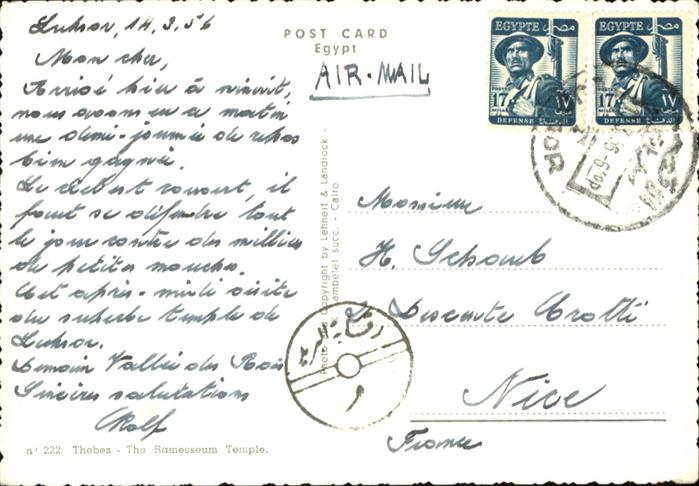 Luksor, 14.3.56
Mon cher,
Arrivé hier à minuit,
nous avons eu ce matin
une demi-journée de repos
bien gagnée.
Le debert rouvert, il
faut se défendre tout
le jour contre des milliers
de petites mouches.
Cet après-midi visite
du superbe temple de
Luksor.
Demain Vallée des Rois
Sincères salutations
Rolf
nº 222 Thebes - The Ramesseum Temple.
POST CARD
Egypt
AIR-MAIL
Copyright by Lehnert & Landrock -
succ. - Cairo
EGYPTE مصر
17 ١٧
MILLS
DEFENSE الدفاع
EGYPTE مصر
17 ١٧
MILLS
DEFENSE الدفاع
Monsieur
H. Schaub
2 Descente Crotti
Nice
France